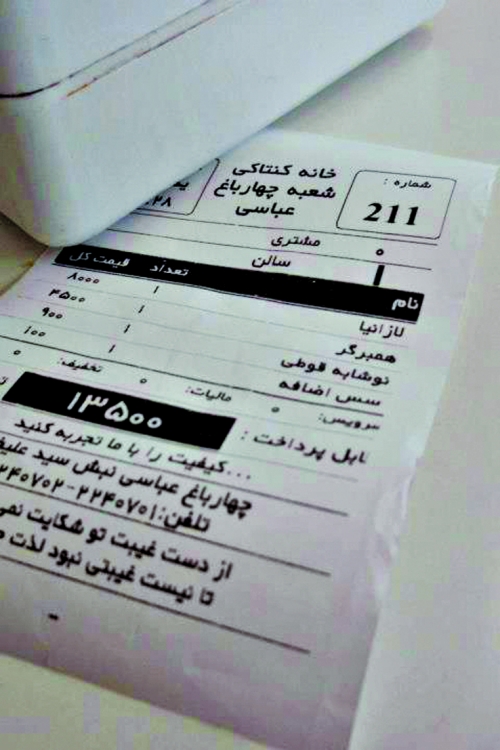 خانه کنتاکی
شعبه چهارباغ
عباسی
شماره :
211
۲۸
مشتری ۰
سالن
نام تعداد قیمت کل
لازانیا ۱ ۸۰۰۰
همبرگر ۱ ۴۵۰۰
نوشابه قوطی ۱ ۹۰۰
سس اضافه ۱ ۱۰۰
سرویس: ۰ مالیات: ۰ تخفیف: ۰
ابل پرداخت : ۱۳۵۰۰
کیفیت را با ما تجربه کنید...
چهارباغ عباسی نبش سید علی
تلفن: ۲۲۴۰۷۰۱ - ۲۲۴۰۷۰۲
از دست غیبت تو شکایت نمی
تا نیست غیبتی نبود لذت